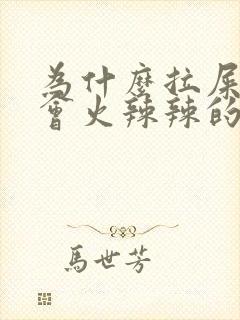 為什麼拉屎
會火辣辣的
馬世芳